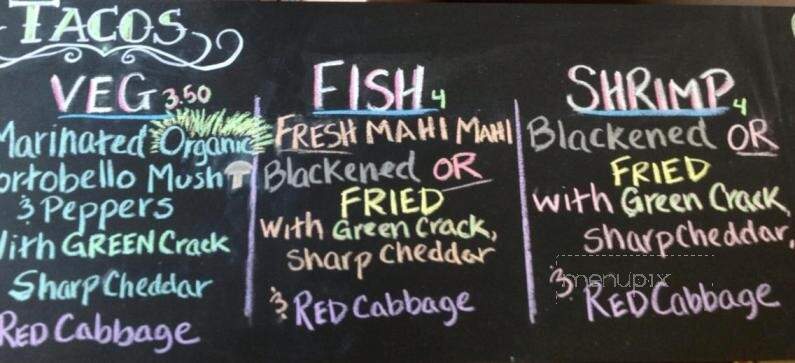 TACOS
VEG 3.50
Marinated Organic
Portobello Mush
& Peppers
With GREEN Crack
Sharp Cheddar
RED Cabbage
FISH 4
FRESH MAHI MAHI
Blackened OR
FRIED
with Green Crack,
Sharp Cheddar
& RED Cabbage
SHRIMP 4
Blackened OR
FRIED
with Green Crack,
Sharp Cheddar,
& RED Cabbage
menupix